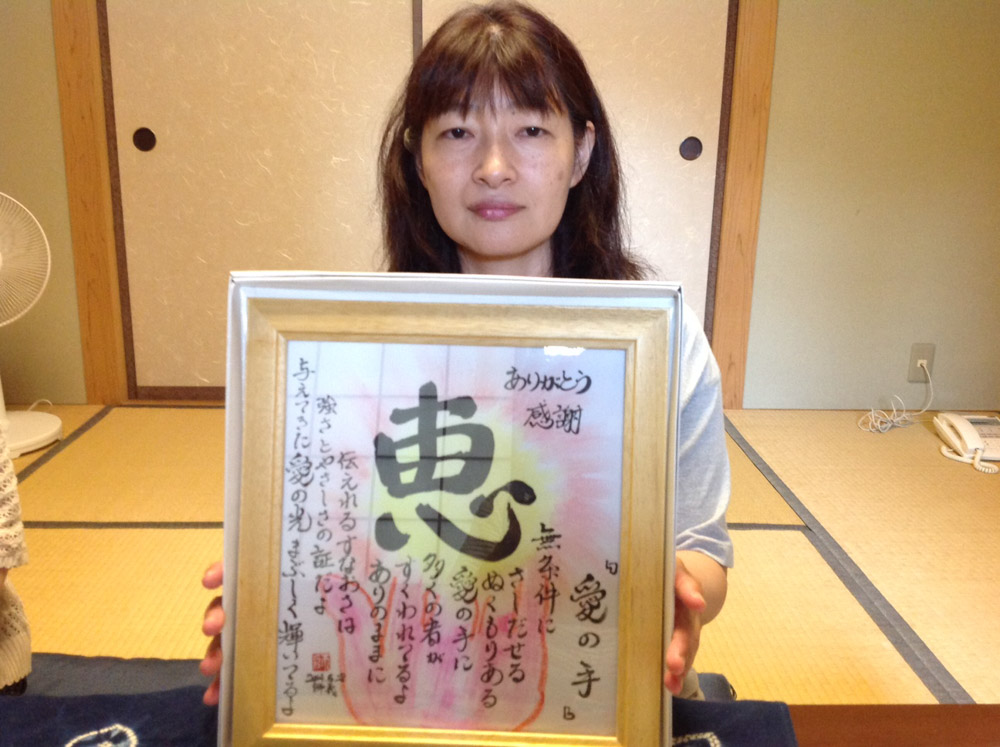 ありがとう
感謝
恵
『愛の手』
無条件に
さしだせる
ぬくもりある
愛の手に
多くの者が
すくわれてるよ
ありのままに
伝えれるすなおさは
強さとやさしさの証だよ
与えてきた愛の光まぶしく輝いてるよ